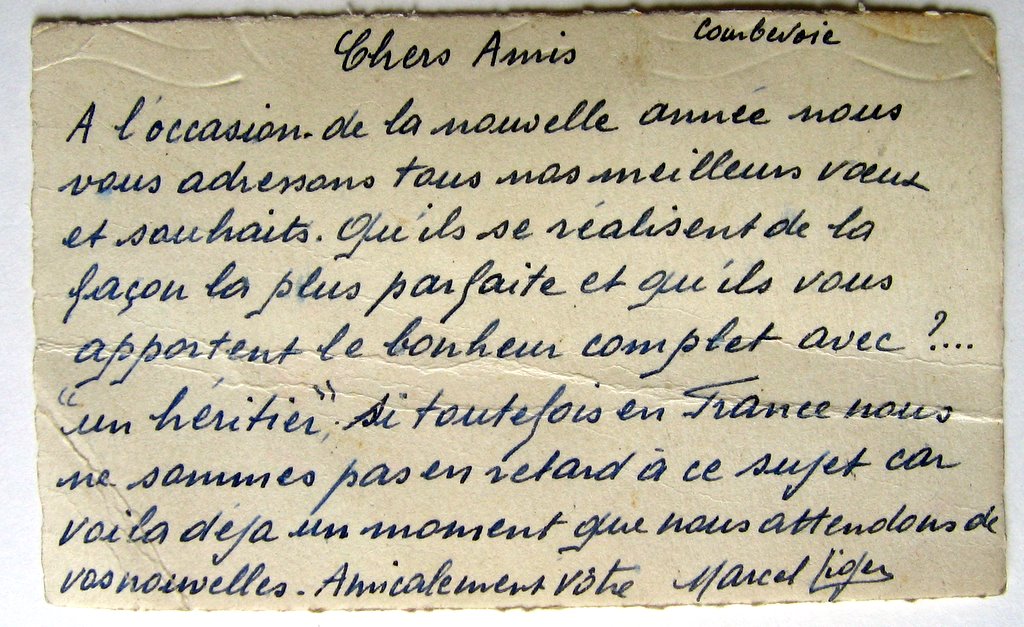 Courbevoie
Chers Amis
A l'occasion de la nouvelle année nous
vous adressons tous nos meilleurs vœux
et souhaits. Qu'ils se réalisent de la
façon la plus parfaite et qu'ils vous
apportent le bonheur complet avec ?....
"un héritier", si toutefois en France nous
ne sommes pas en retard à ce sujet car
voila déja un moment que nous attendons de
vos nouvelles. Amicalement vôtre Marcel